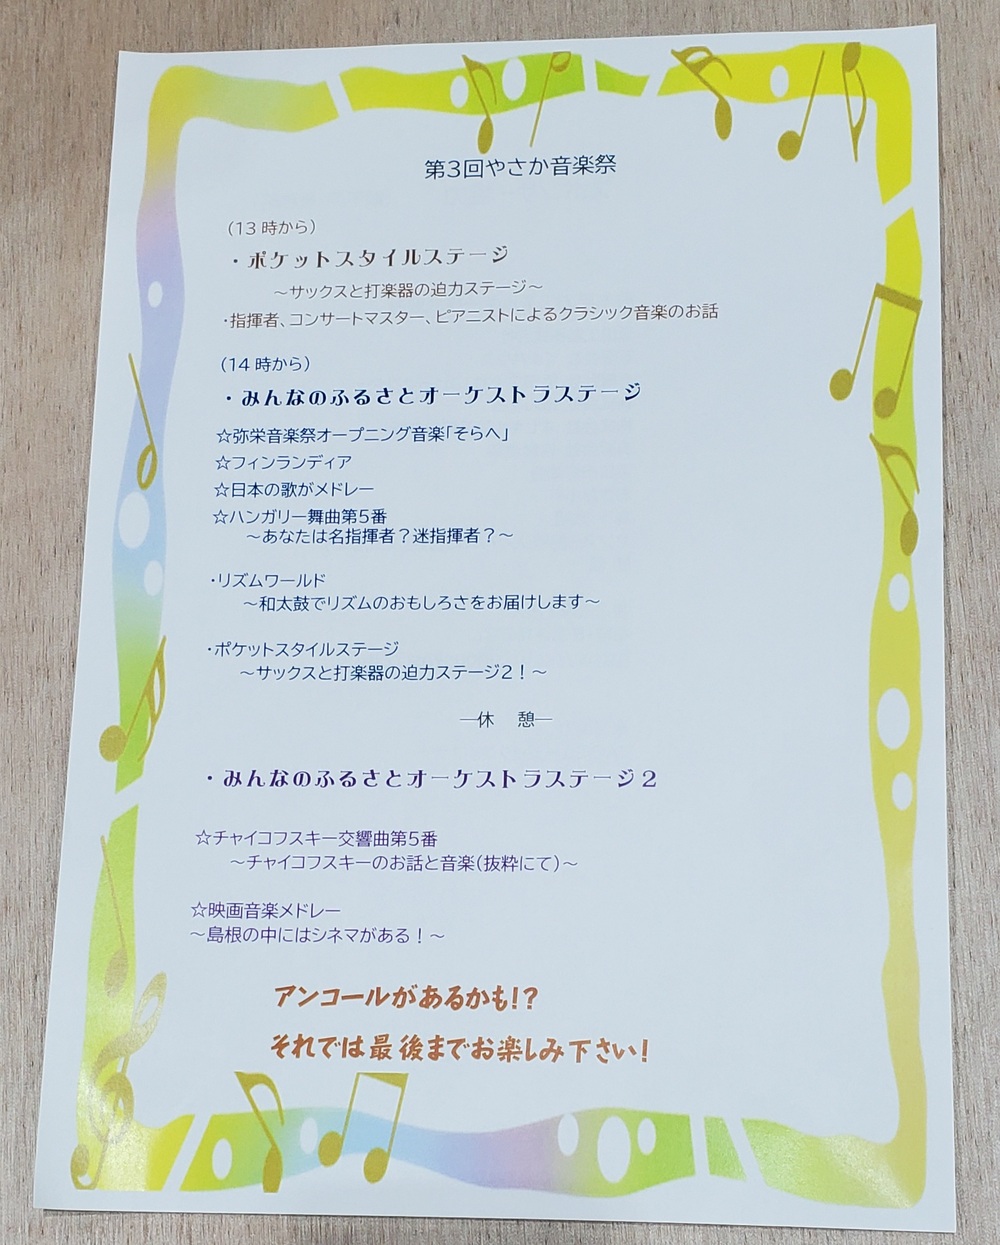 第3回やさか音楽祭
（13 時から）
・ポケットスタイルステージ
～サックスと打楽器の迫力ステージ～
・指揮者、コンサートマスター、ピアニストによるクラシック音楽のお話
（14 時から）
・みんなのふるさとオーケストラステージ
☆弥栄音楽祭オープニング音楽「そらへ」
☆フィンランディア
☆日本の歌がメドレー
☆ハンガリー舞曲第5番
～あなたは名指揮者？迷指揮者？～
・リズムワールド
～和太鼓でリズムのおもしろさをお届けします～
・ポケットスタイルステージ
～サックスと打楽器の迫力ステージ2！～
―休　憩―
・みんなのふるさとオーケストラステージ２
☆チャイコフスキー交響曲第5番
～チャイコフスキーのお話と音楽（抜粋にて）～
☆映画音楽メドレー
～島根の中にはシネマがある！～
アンコールがあるかも!?
それでは最後までお楽しみ下さい!